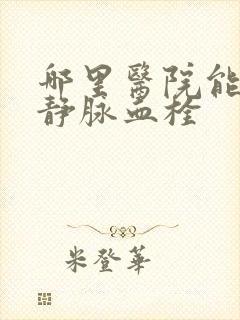 哪里醫院能
静脉血栓
米登華